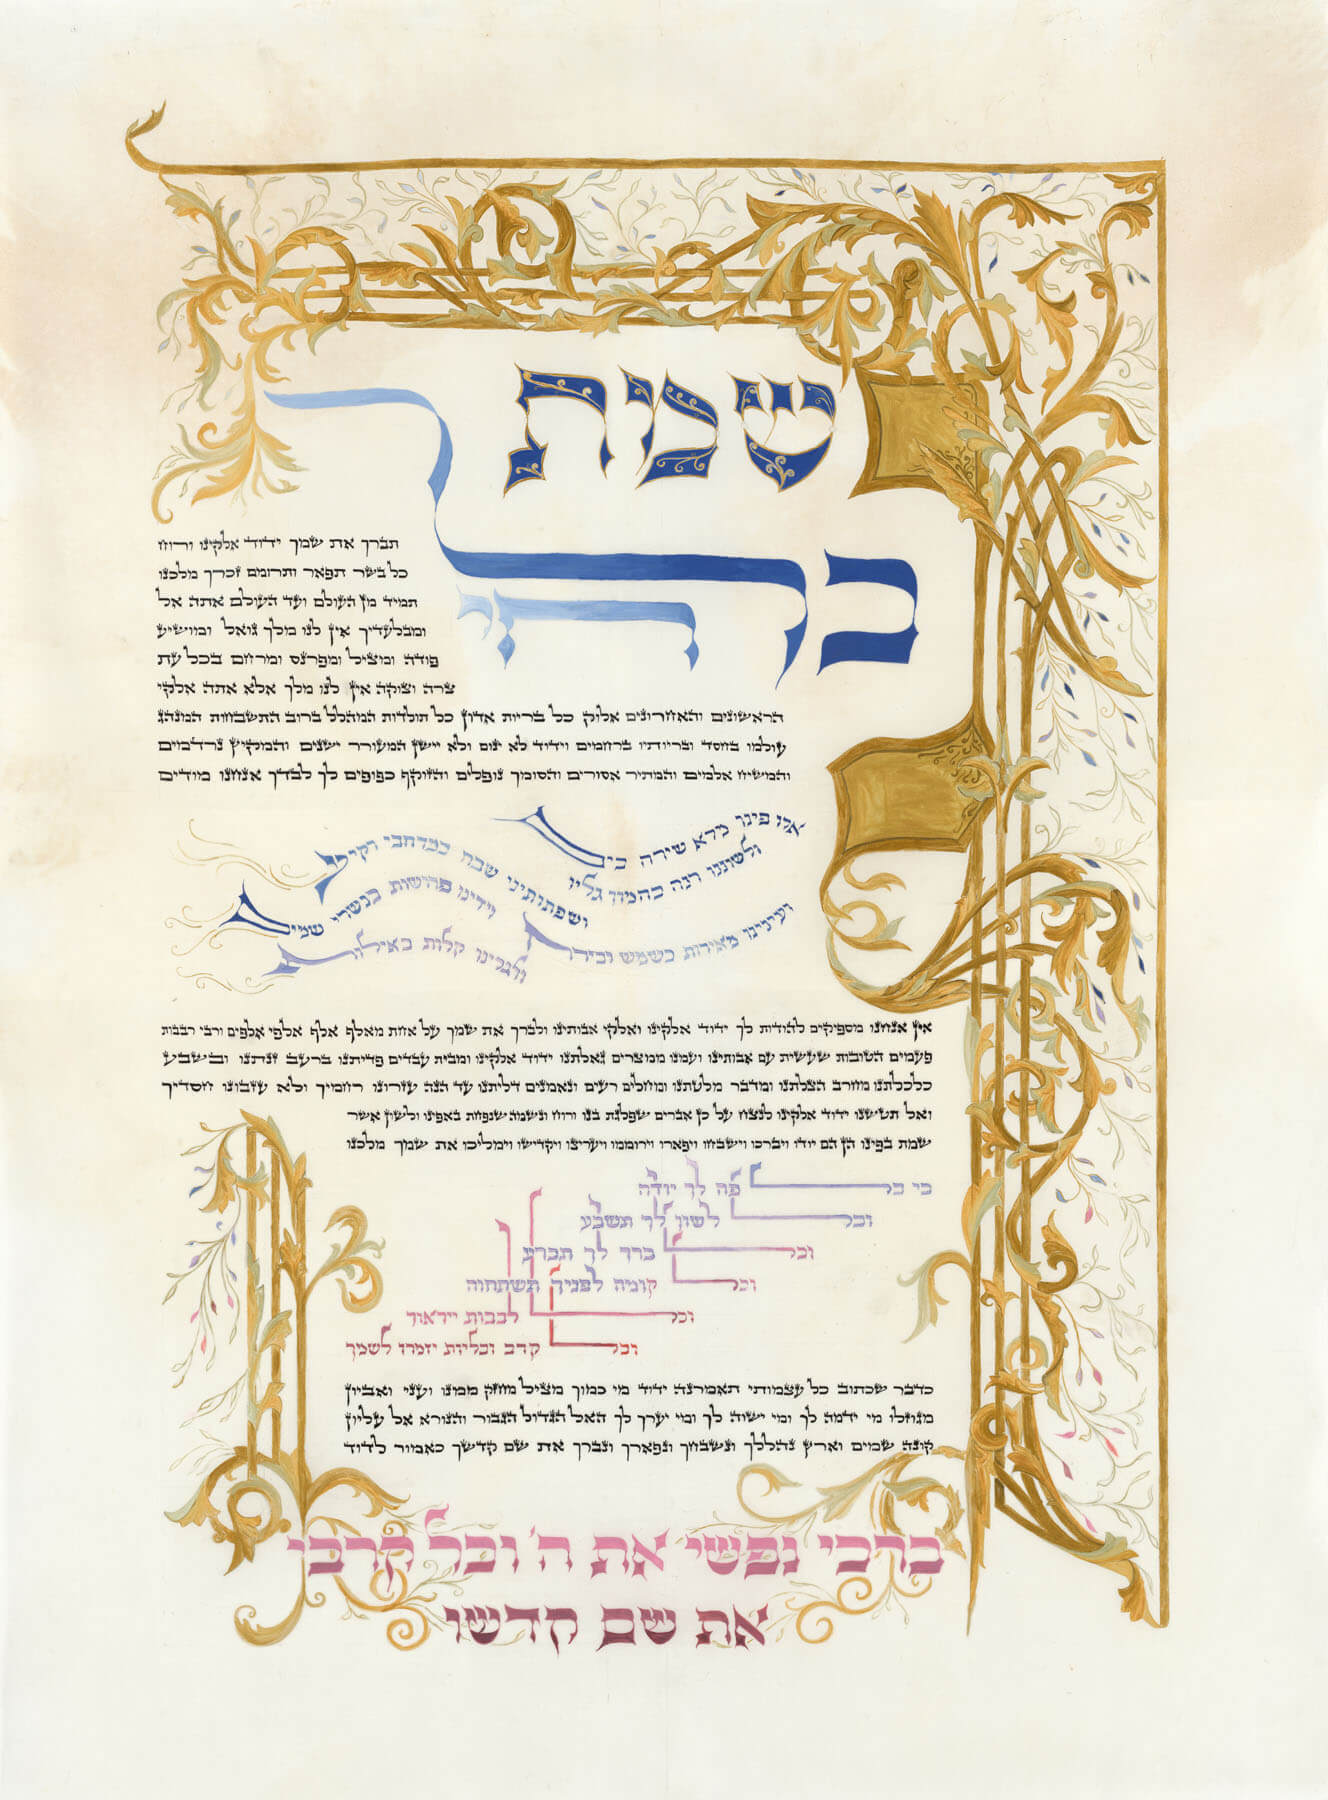 נשמת
כל חי
תברך את שמך ידוד אלקינו ורוח
כל בשר תפאר ותרומם זכרך מלכנו
תמיד מן העולם ועד העולם אתה אל
ומבלעדיך אין לנו מלך גואל ומושיע
פודה ומציל ומפרנס ומרחם בכל עת
צרה וצוקה אין לנו מלך אלא אתה אלקי
הראשונים והאחרונים אלוק כל בריות אדון כל תולדות המהלל ברוב התשבחות המנהג
עולמו בחסד ובריותיו ברחמים וידוד לא ינום ולא יישן המעורר ישנים והמקיץ נרדמים
והמשיח אלמים והמתיר אסורים והסומך נופלים והזוקף כפופים לך לבדך אנחנו מודים
אלו פינו מלא שירה כים
ולשוננו רנה כהמון גליו
ושפתותינו שבח כמרחבי רקיע
ועינינו מאירות כשמש וכירח
וידינו פרושות כנשרי שמים
ורגלינו קלות כאילות
אין אנחנו מספיקים להודות לך ידוד אלקינו ואלקי אבותינו ולברך את שמך על אחת מאלף אלף אלפי אלפים ורבי רבבות
פעמים הטובות שעשית עם אבותינו ועמנו ממצרים גאלתנו ידוד אלקינו ומבית עבדים פדיתנו ברעב זנתנו ובשבע
כלכלתנו מחרב הצלתנו ומדבר מלטתנו ומחלים רעים ונאמנים דליתנו עד הנה עזרונו רחמיך ולא עזבונו חסדיך
ואל תטשנו ידוד אלקינו לנצח על כן אברים שפלגת בנו ורוח ונשמה שנפחת באפינו ולשון אשר
שמת בפינו הן הם יודו ויברכו וישבחו ויפארו וירוממו ויעריצו ויקדישו וימליכו את שמך מלכנו
כי כל פה לך יודה
וכל לשון לך תשבע
וכל ברך לך תכרע
וכל קומה לפניך תשתחוה
וכל לבבות ייראוך
וכל קרב וכליות יזמרו לשמך
כדבר שכתוב כל עצמותי תאמרנה ידוד מי כמוך מציל עני מחזק ממנו ועני ואביון
מגוזלו מי ידמה לך ומי ישוה לך ומי יערך לך האל הגדול הגבור והנורא אל עליון
קונה שמים וארץ נהללך ונשבחך ונפארך ונברך את שם קדשך כאמור לדוד
ברכי נפשי את ה' וכל קרבי
את שם קדשו